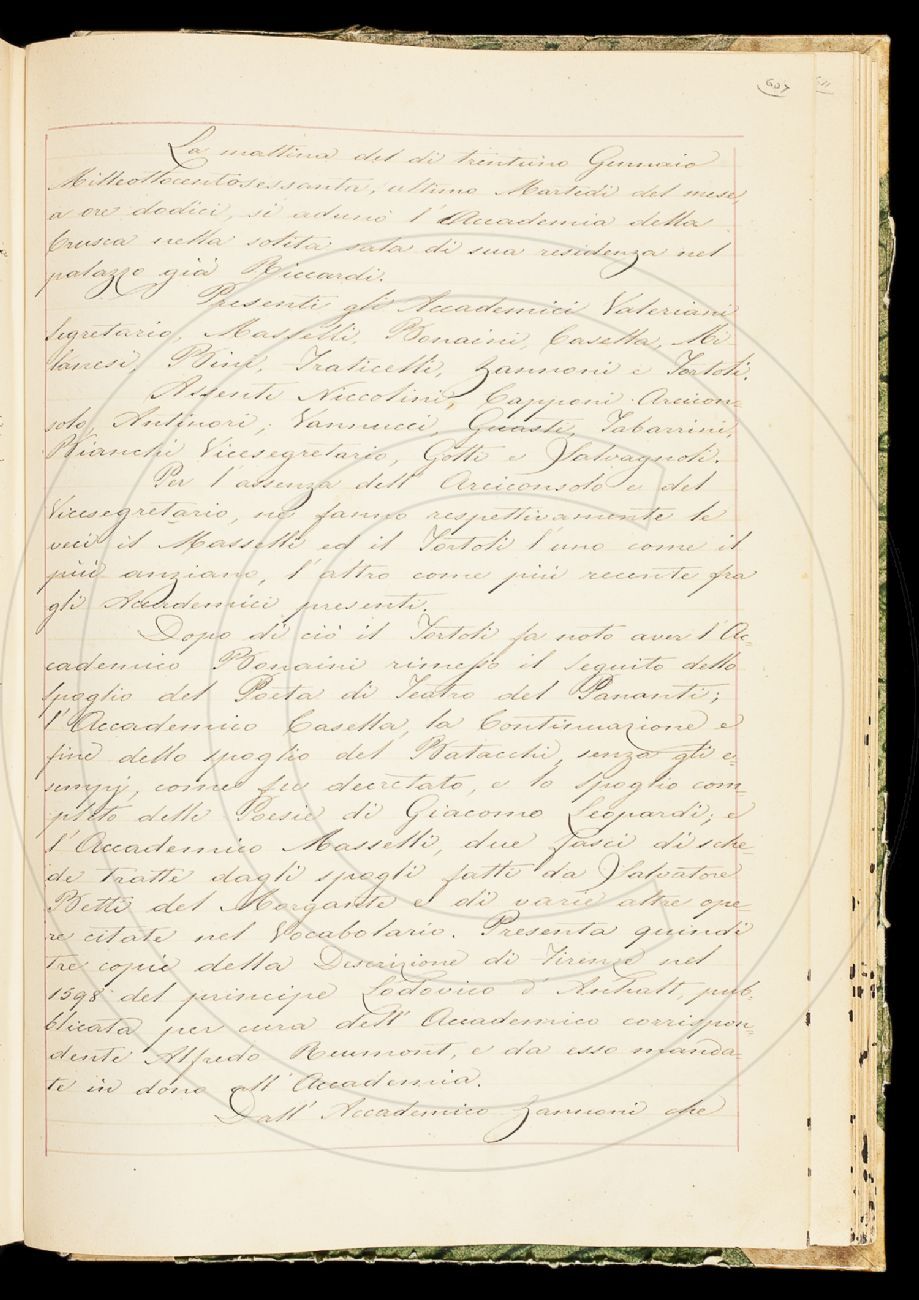 607
611
La mattina del dì trentuno Gennaio
Milleottocentosessanta, ultimo Martedì del mese,
a ore dodici, si adunò l'Accademia della
Crusca nella solita sala di sua residenza nel
palazzo già Riccardi.
Presenti gli Accademici Valeriani
Segretario, Masselli, Bonaini, Casella, Mi-
lanesi, Bini, Fraticelli, Zannoni e Tortoli.
Assenti Niccolini, Capponi Arcicon=
solo, Antinori, Vannucci, Guasti, Tabarrini,
Bianchi Vicesegretario, Gotti e Salvagnoli.
Per l'assenza dell'Arciconsolo e del
Vicesegretario, ne fanno respettivamente le
veci il Masselli ed il Tortoli l'uno come il
più anziano, l'altro come più recente fra
gli Accademici presenti.
Dopo di ciò il Tortoli fa noto aver l'Ac=
cademico Bonaini rimesso il seguito dello
spoglio del Poeta di Teatro del Pananti;
l'Accademico Casella, la Continuazione e
fine dello spoglio del Batacchi, senza gli e=
sempj, come fu decretato, e lo Spoglio com=
pleto delle Poesie di Giacomo Leopardi; e
l'Accademico Masselli, due fasci di sche=
de tratte dagli spogli fatti da Salvatore
Betti del Morgante e di varie altre ope=
re citate nel Vocabolario. Presenta quindi
tre copie della Descrizione di Firenze nel
1598 del principe Lodovico d'Anhalt, pub=
blicata per cura dell'Accademico corrispon=
dente Alfredo Reumont, e da esso manda=
te in dono all'Accademia.
Dall'Accademico Zannoni che